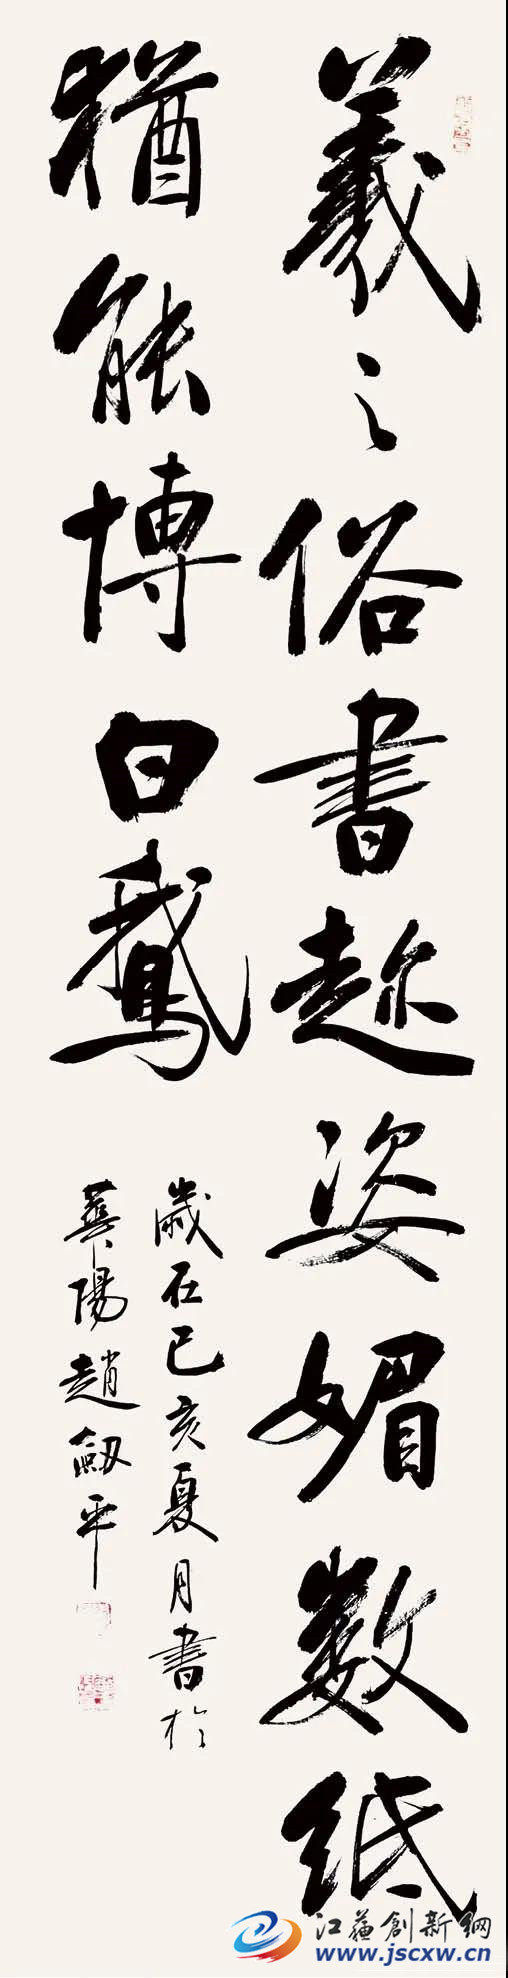 羲之俗書趂姿媚數紙
猶能博白鵞
歲在己亥夏月書於
華陽趙劔平
江蘇創新網
www.jscxw.cn